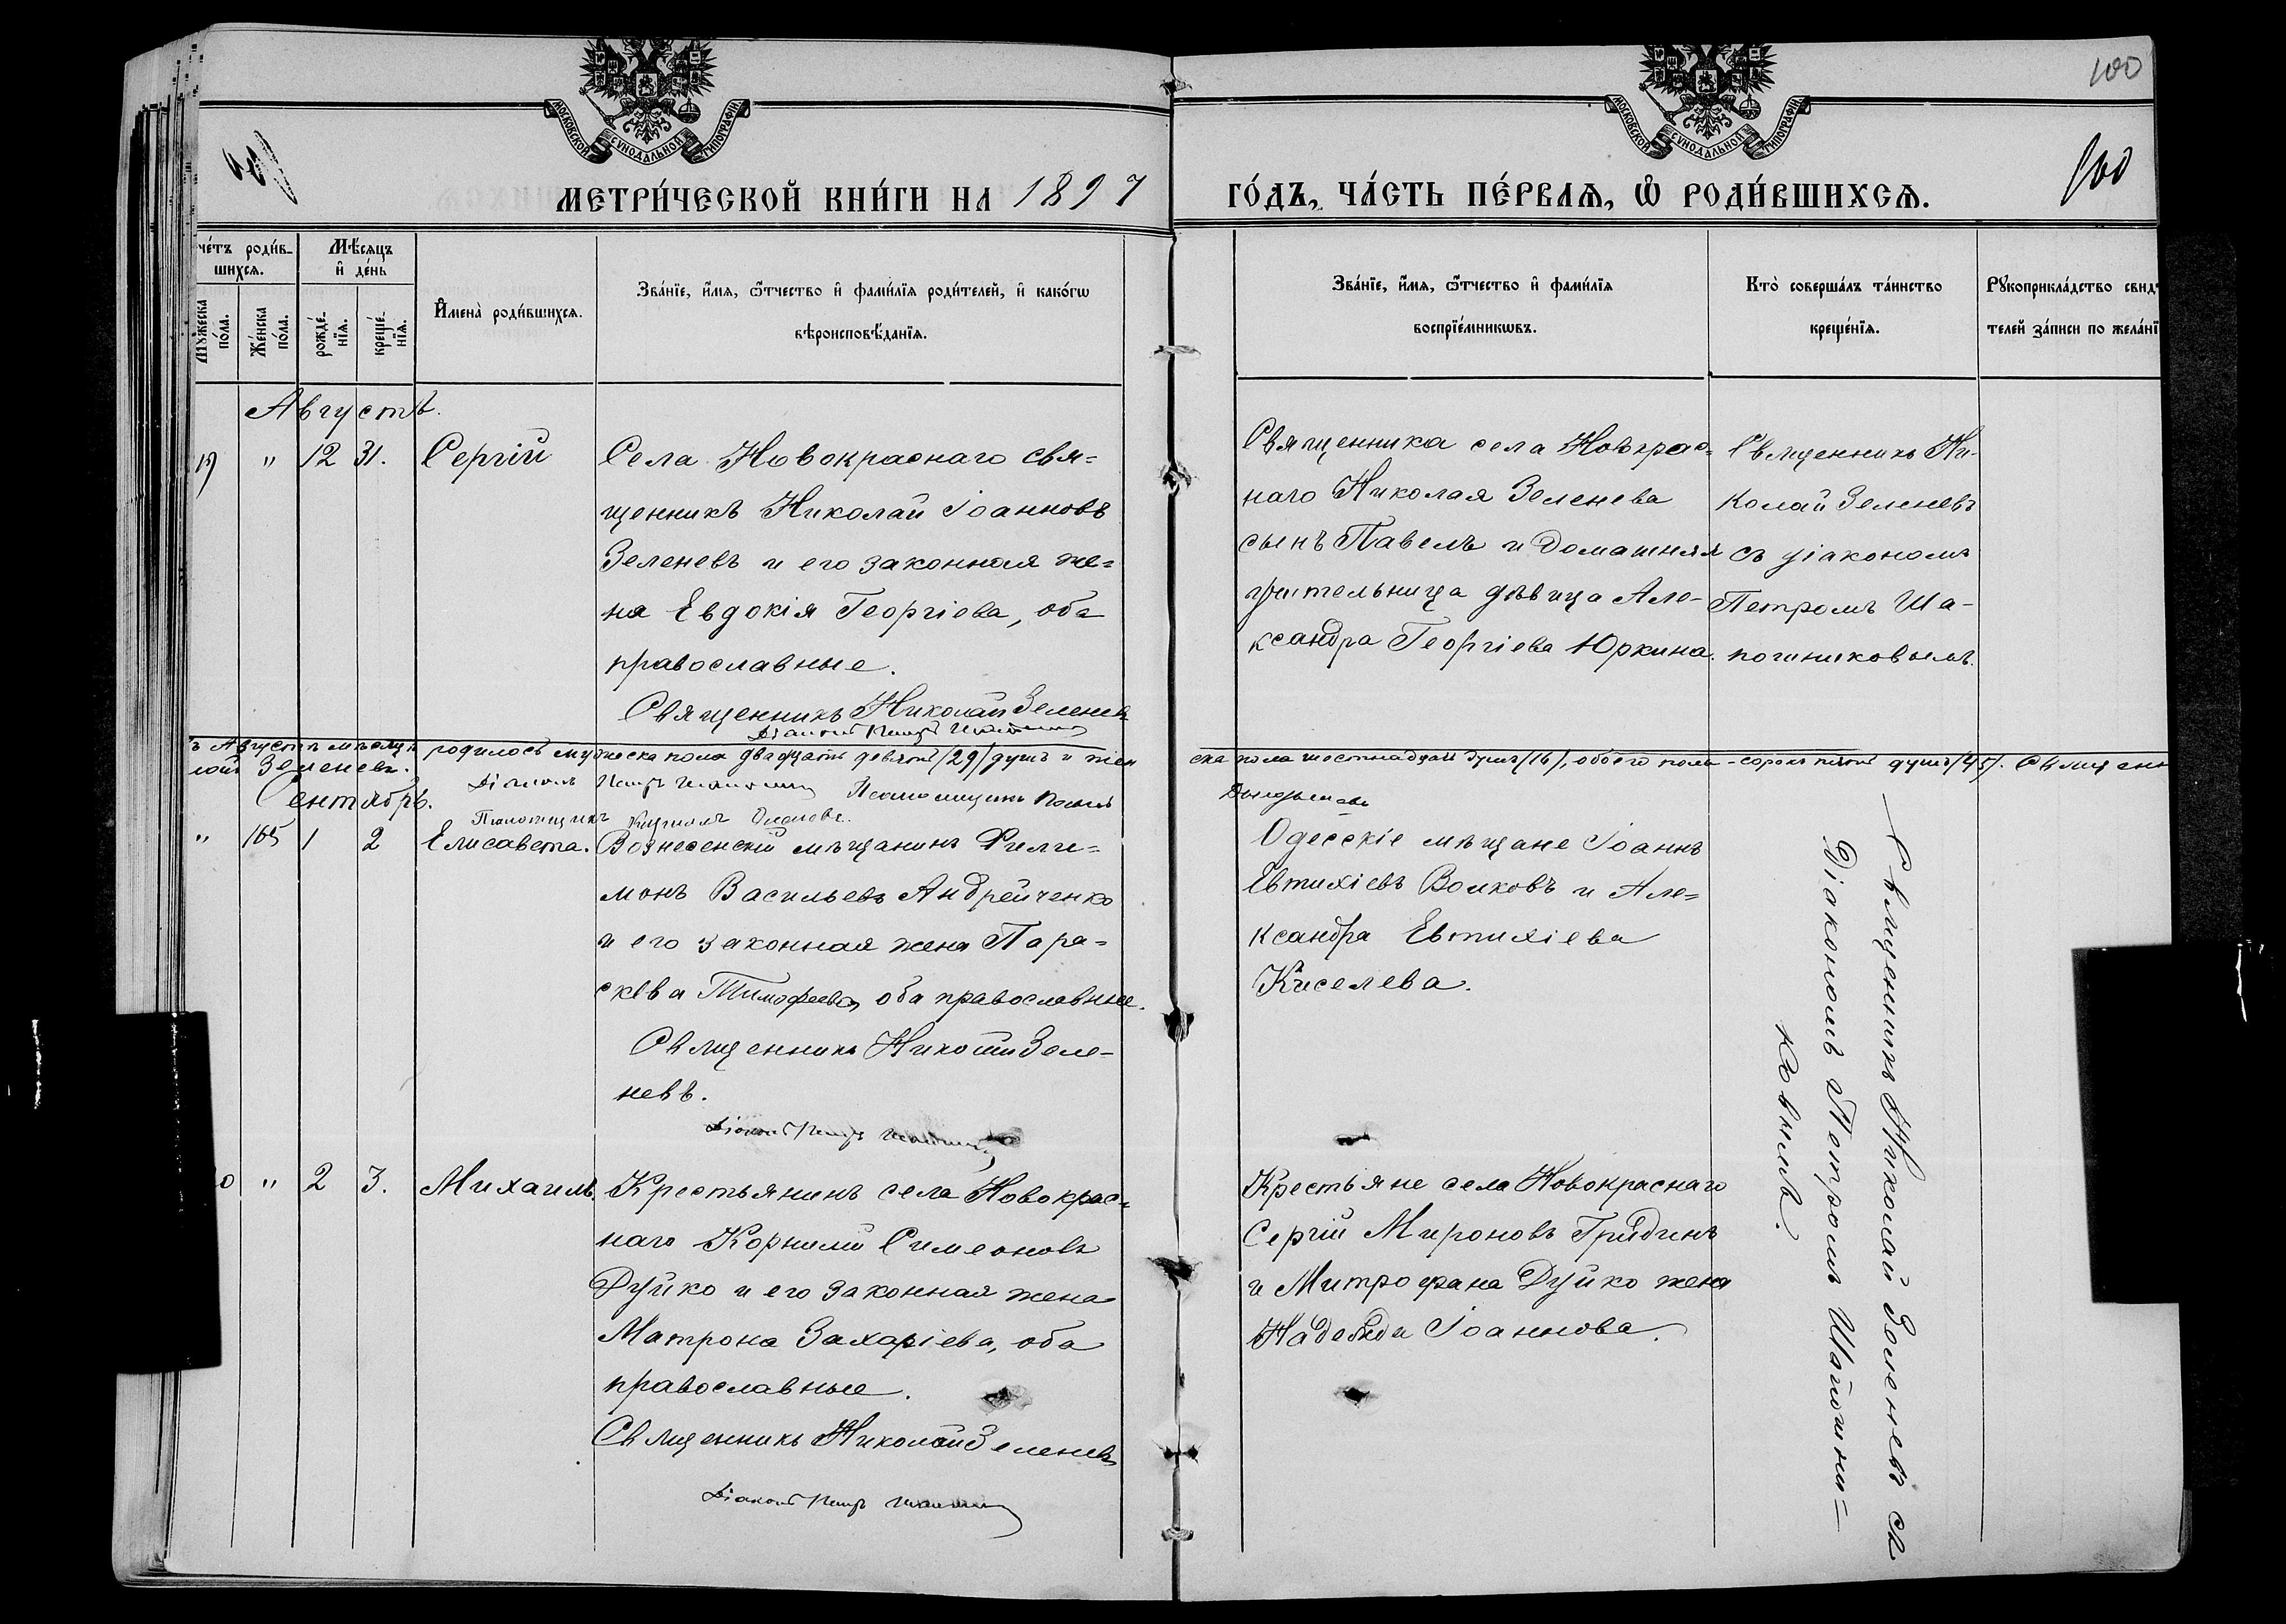 100
100
МОСКОВСКОЙ СѴНОДАЛЬНОЙ ТИПОГРАФІИ
МОСКОВСКОЙ СѴНОДАЛЬНОЙ ТИПОГРАФІИ
МЕТРИ́ЧЕСКОЙ КНИ́ГИ НА 1897
ГО́ДЪ, ЧА́СТЬ ПЕ́РВАѦ, Ѽ РОДИ́ВШИХСѦ.
че́тъ роди́в-
шихсѧ.
Мѣ́сѧцъ
и҆ де́нь
Мꙋ́жеска
по́ла.
Же́нска
по́ла.
рожде́-
нїѧ.
креще́-
нїѧ.
И҆мена̀ роди́вшихсѧ.
Зва́нїе, и҆́мѧ, ѻ҆́тчество и҆ фами́лїѧ роди́телей, и҆ како́гѡ
вѣроисповѣ́данїѧ.
Зва́нїе, и҆́мѧ, ѻ҆́тчество и҆ фами́лїѧ
воспрїе́мникѡвъ.
Кто̀ соверша́лъ та́инство
креще́нїѧ.
Рꙋкоприкла́дство свид
телей за́писи по жела́нї
Августъ.
" 12 31. Сергій
Села Новокраснаго свя=
щенникъ Николай Іоанновъ
Зеленевъ и его законная же=
на Евдокія Георгіева, оба
православные.
Священникъ Николай Зеленевъ
Діаконъ Петръ
Священника села Новокрас=
наго Николая Зеленева
сынъ Павелъ и домашняя
учительница дѣвица Але-
ксандра Георгіева Юркина.
Священникъ Ни-
колай Зеленевъ
съ діакономъ
Петромъ Ша-
пошниковымъ.
ъ Августѣ мѣсяцѣ родилось мужеска пола двадцать девять /29/ душъ и жен
ска пола шестнадцать душъ /16/, обоего пола - сорокъ пять душъ /45/. Священн
лай Зеленевъ.
Діаконъ Петръ Псаломщикъ
Псаломщикъ
Сентябрь.
" 165 1 2 Елисавета.
Вознесенскій мѣщанинъ Фили=
монъ Васильевъ Андрейченко
и его законная жена Пара=
скева Тимофеева, оба православные.
Священникъ Николай Зеле-
невъ.
Діаконъ Петръ
Одесскіе мѣщане Іоаннъ
Евтихіевъ Волковъ и Але=
ксандра Евтихіева
Киселева.
Священникъ Николай Зеленевъ съ
Діакономъ Петромъ Шапошни=
ковымъ.
0 " 2 3. Михаилъ.
Крестьянинъ села Новокрас=
наго Корнилій Симеоновъ
Дуйко и его законная жена
Матрона Захаріева, оба
православные.
Священникъ Николай Зеленевъ
Діаконъ Петръ
Крестьяне села Новокраснаго
Сергій Мироновъ Гридинъ
и Митрофана Дуйко жена
Надежда Іоаннова.